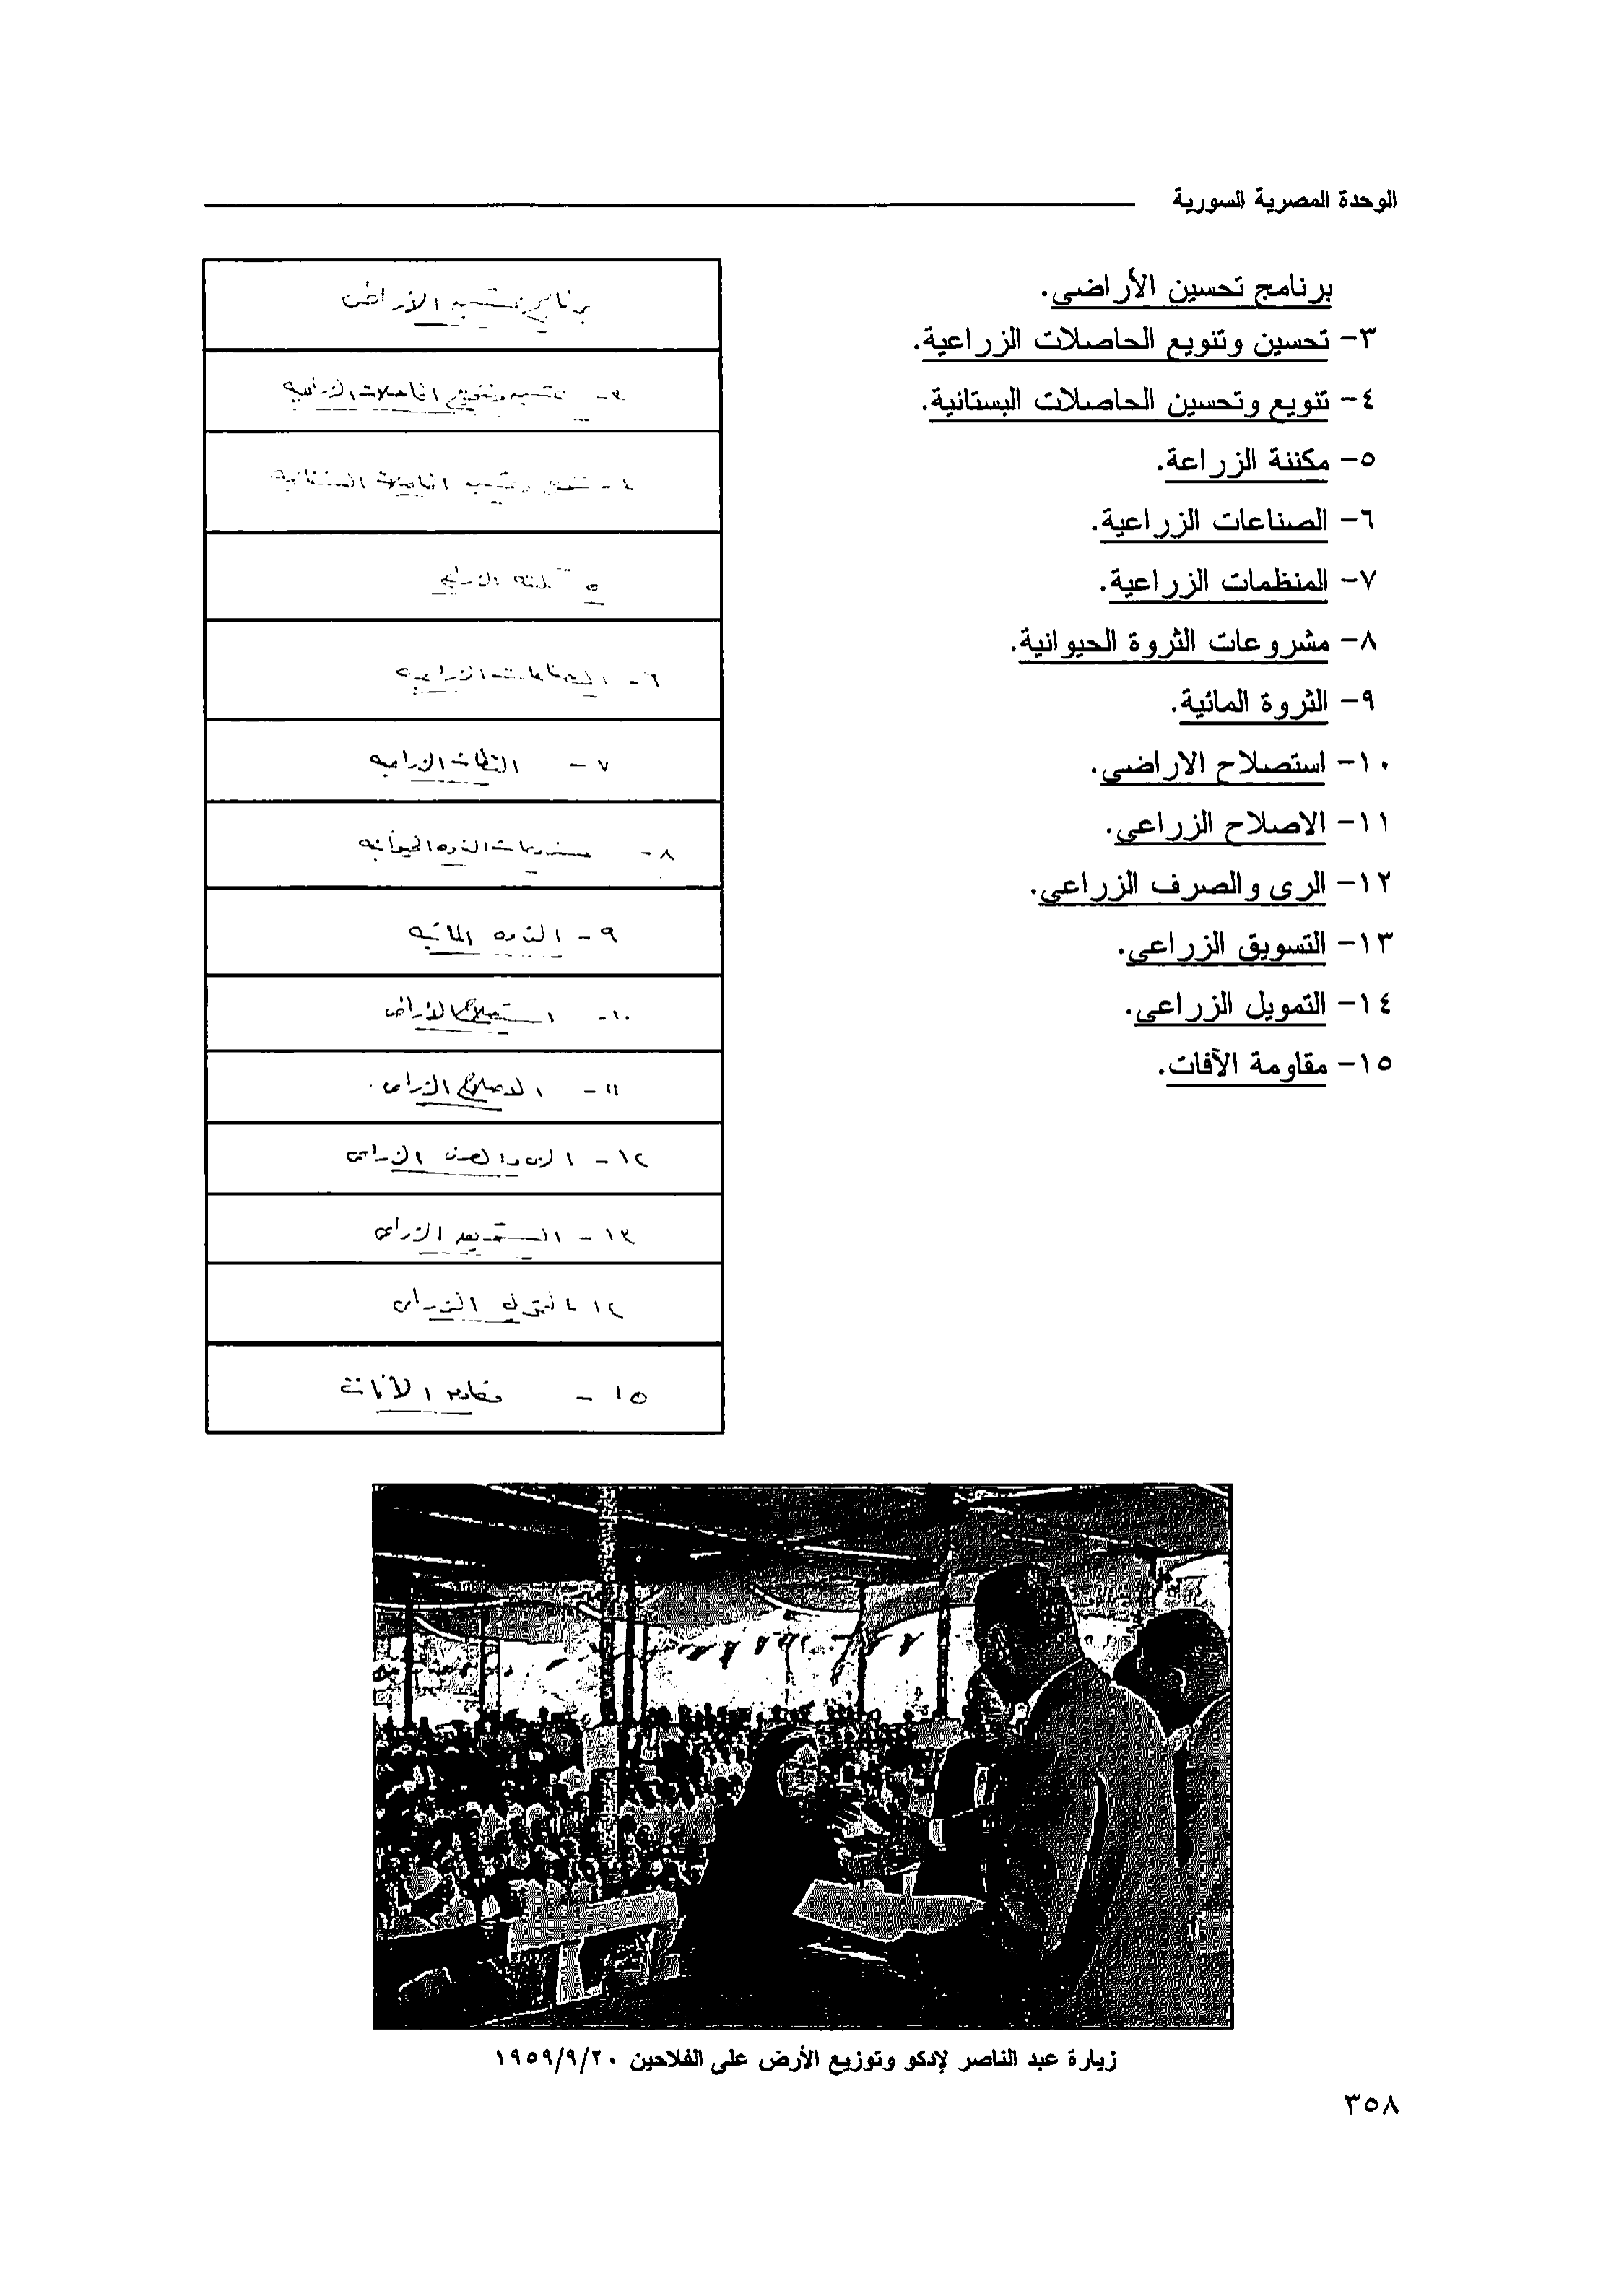 الوحدة المصرية السورية
برنامج تحسين الأراضى.
٣- تحسين وتنويع الحاصلات الزراعية.
٤- تنويع وتحسين الحاصلات البستانية.
٥- مكننة الزراعة.
٦- الصناعات الزراعية.
٧- المنظمات الزراعية.
٨- مشروعات الثروة الحيوانية.
٩- الثروة المائية.
١٠- استصلاح الاراضى.
١١- الاصلاح الزراعى.
١٢- الرى والصرف الزراعى.
١٣- التسويق الزراعى.
١٤- التمويل الزراعى.
١٥- مقاومة الآفات.
برنامج تحسين الأراضى
٣- تحسين وتنويع الحاصلات الزراعيه
٤- تنويع وتحسين الحاصلات البستانيه
٥ - الزراعه
٦- الصناعات الزراعيه
٧- المنظمات الزراعيه
٨- مشروعات الثروه الحيوانيه
٩- الثروه المائيه
١٠- استصلاح الأراضى
١١- الاصلاح الزراعى
١٢- الرى والصرف الزراعى
١٣- التسويق الزراعى
١٤- التمويل الزراعى
١٥- مقاومه الآفات
زيارة عبد الناصر لإدكو وتوزيع الأرض على الفلاحين ١٩٥٩/٩/٢٠
٣٥٨